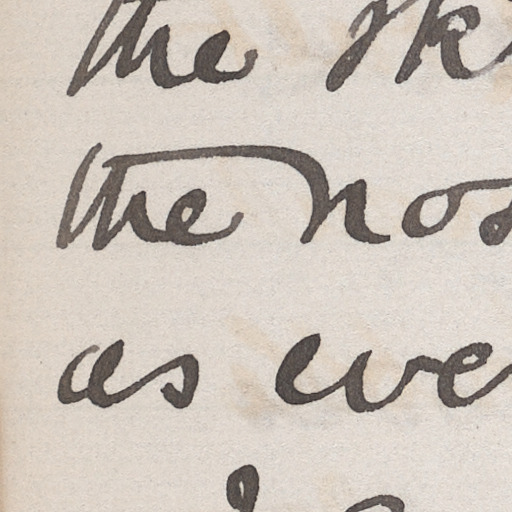 the sk
the nos
as eve